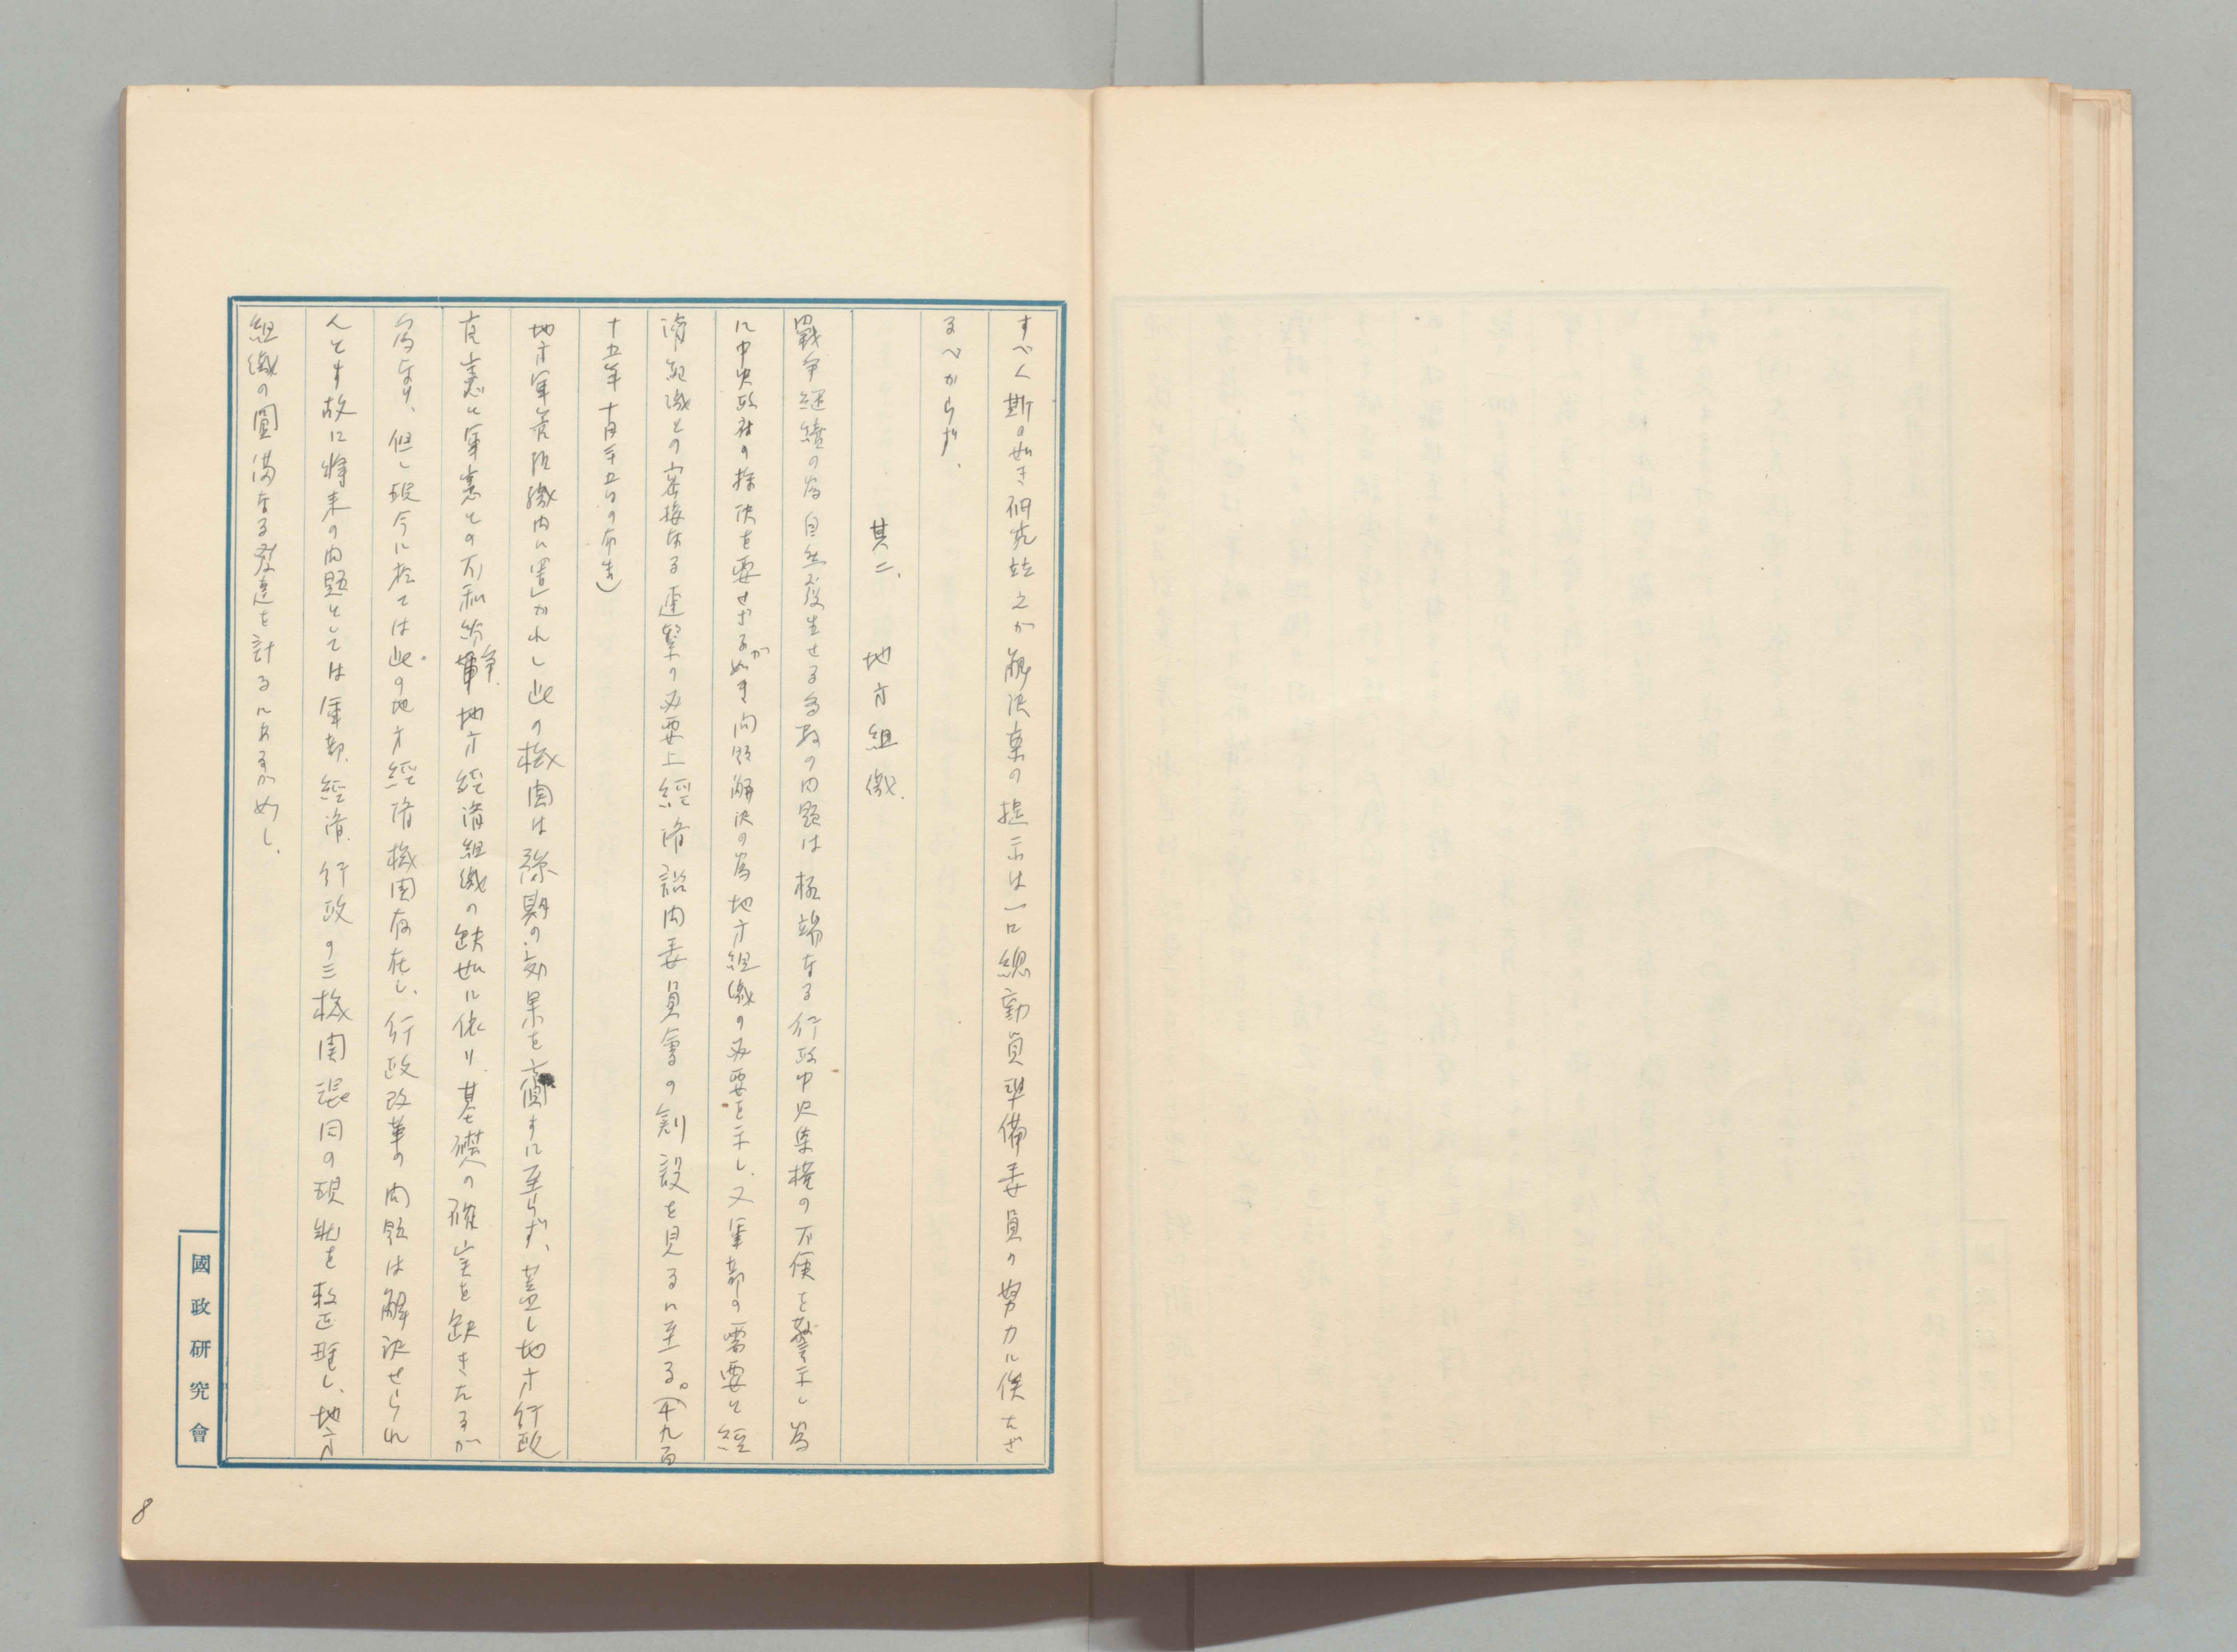 すべく斯の如き研究並之が解決案の提示は一に總動員準備委員の努力に俟たざ
るべからず、
其二、地方組織
戰争継續の為自然発生せる多数の問題は極端なる行政中央集権の不便を警示し為
に中央政府の採決を要せざるが如き問題解決の為地方組織の必要を示し、又軍部の需要と経
済組織との密接なる連繋の必要上経済諮問委員會の創設を見るに至る。(千九百
十五年十月二十五日の布告)
地方軍管区織内に置かれし此の機関は豫期の効果を齎すに至らず、蓋し地方行政
官憲と軍憲との不和紛争、地方経済組織の缺如に依り、基礎の確実を缺きたるが
為なり、但し現今に於ては此の地方経済機関存在し、行政改革の問題は解決せられ
んとす故に将来の問題としては軍部、経済、行政の三機関混同の現状を整理し、地方
組織の圓満なる発達を計るにあるが如し、
國政研究會
8